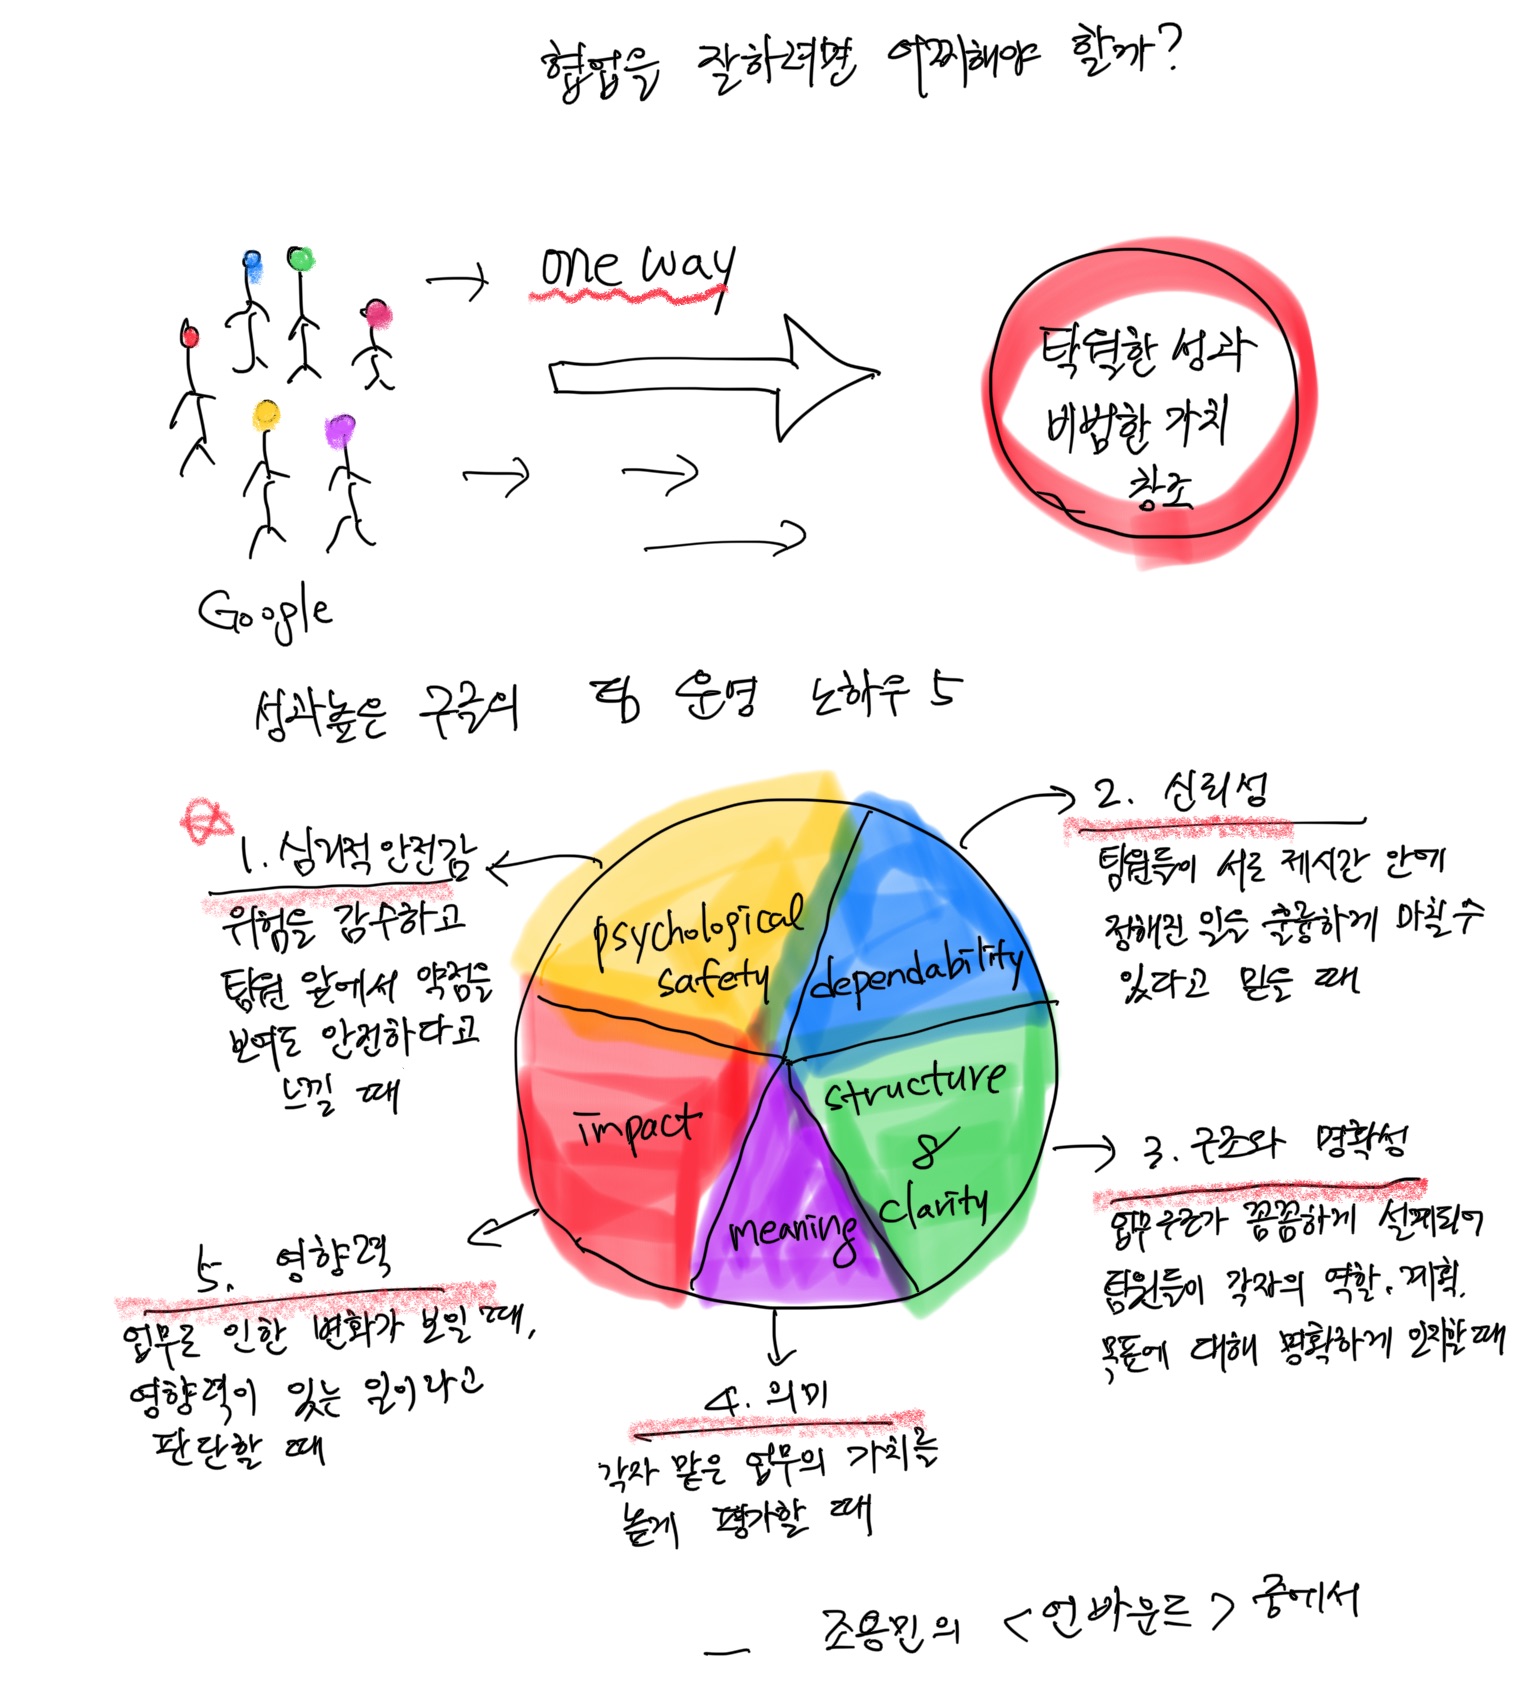 협업을 잘하려면 어찌해야 할까?
one way
탁월한 성과
비범한 가치
창조
Google
성과높은 구글의 팀 운영 노하우 5
1. 심리적 안전감
위험을 감수하고
팀원 앞에서 약점을
보여도 안전하다고
느낄 때
2. 신뢰성
팀원들이 서로 제시간 안에
정해진 일을 훌륭하게 마칠 수
있다고 믿을 때
psychological
safety
dependability
structure
&
clarity
impact
meaning
3. 구조와 명확성
업무구조가 꼼꼼하게 설계되어
팀원들이 각자의 역할, 계획,
목표에 대해 명확하게 인지할 때
5. 영향력
업무로 인한 변화가 보일 때,
영향력이 있는 일이라고
판단할 때
4. 의미
각자 맡은 업무의 가치를
높게 평가할 때
— 조용민의 <언바운드> 중에서